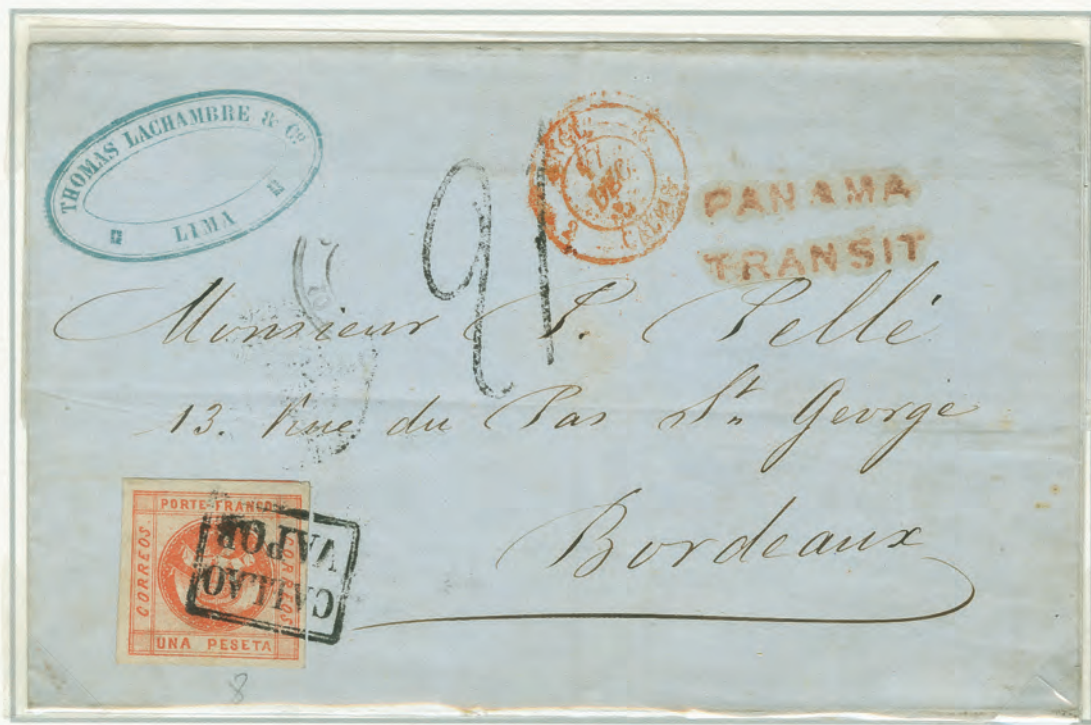 THOMAS LACHAMBRE & Cº
LIMA
21
2
CALAIS
PANAMA
TRANSIT
Monsieur P. Pellé
13. Rue du Pas St. George
Bordeaux
PORTE FRANCO
CORREOS
CORREOS
UNA PESETA
CALLAO
VAPOR
8